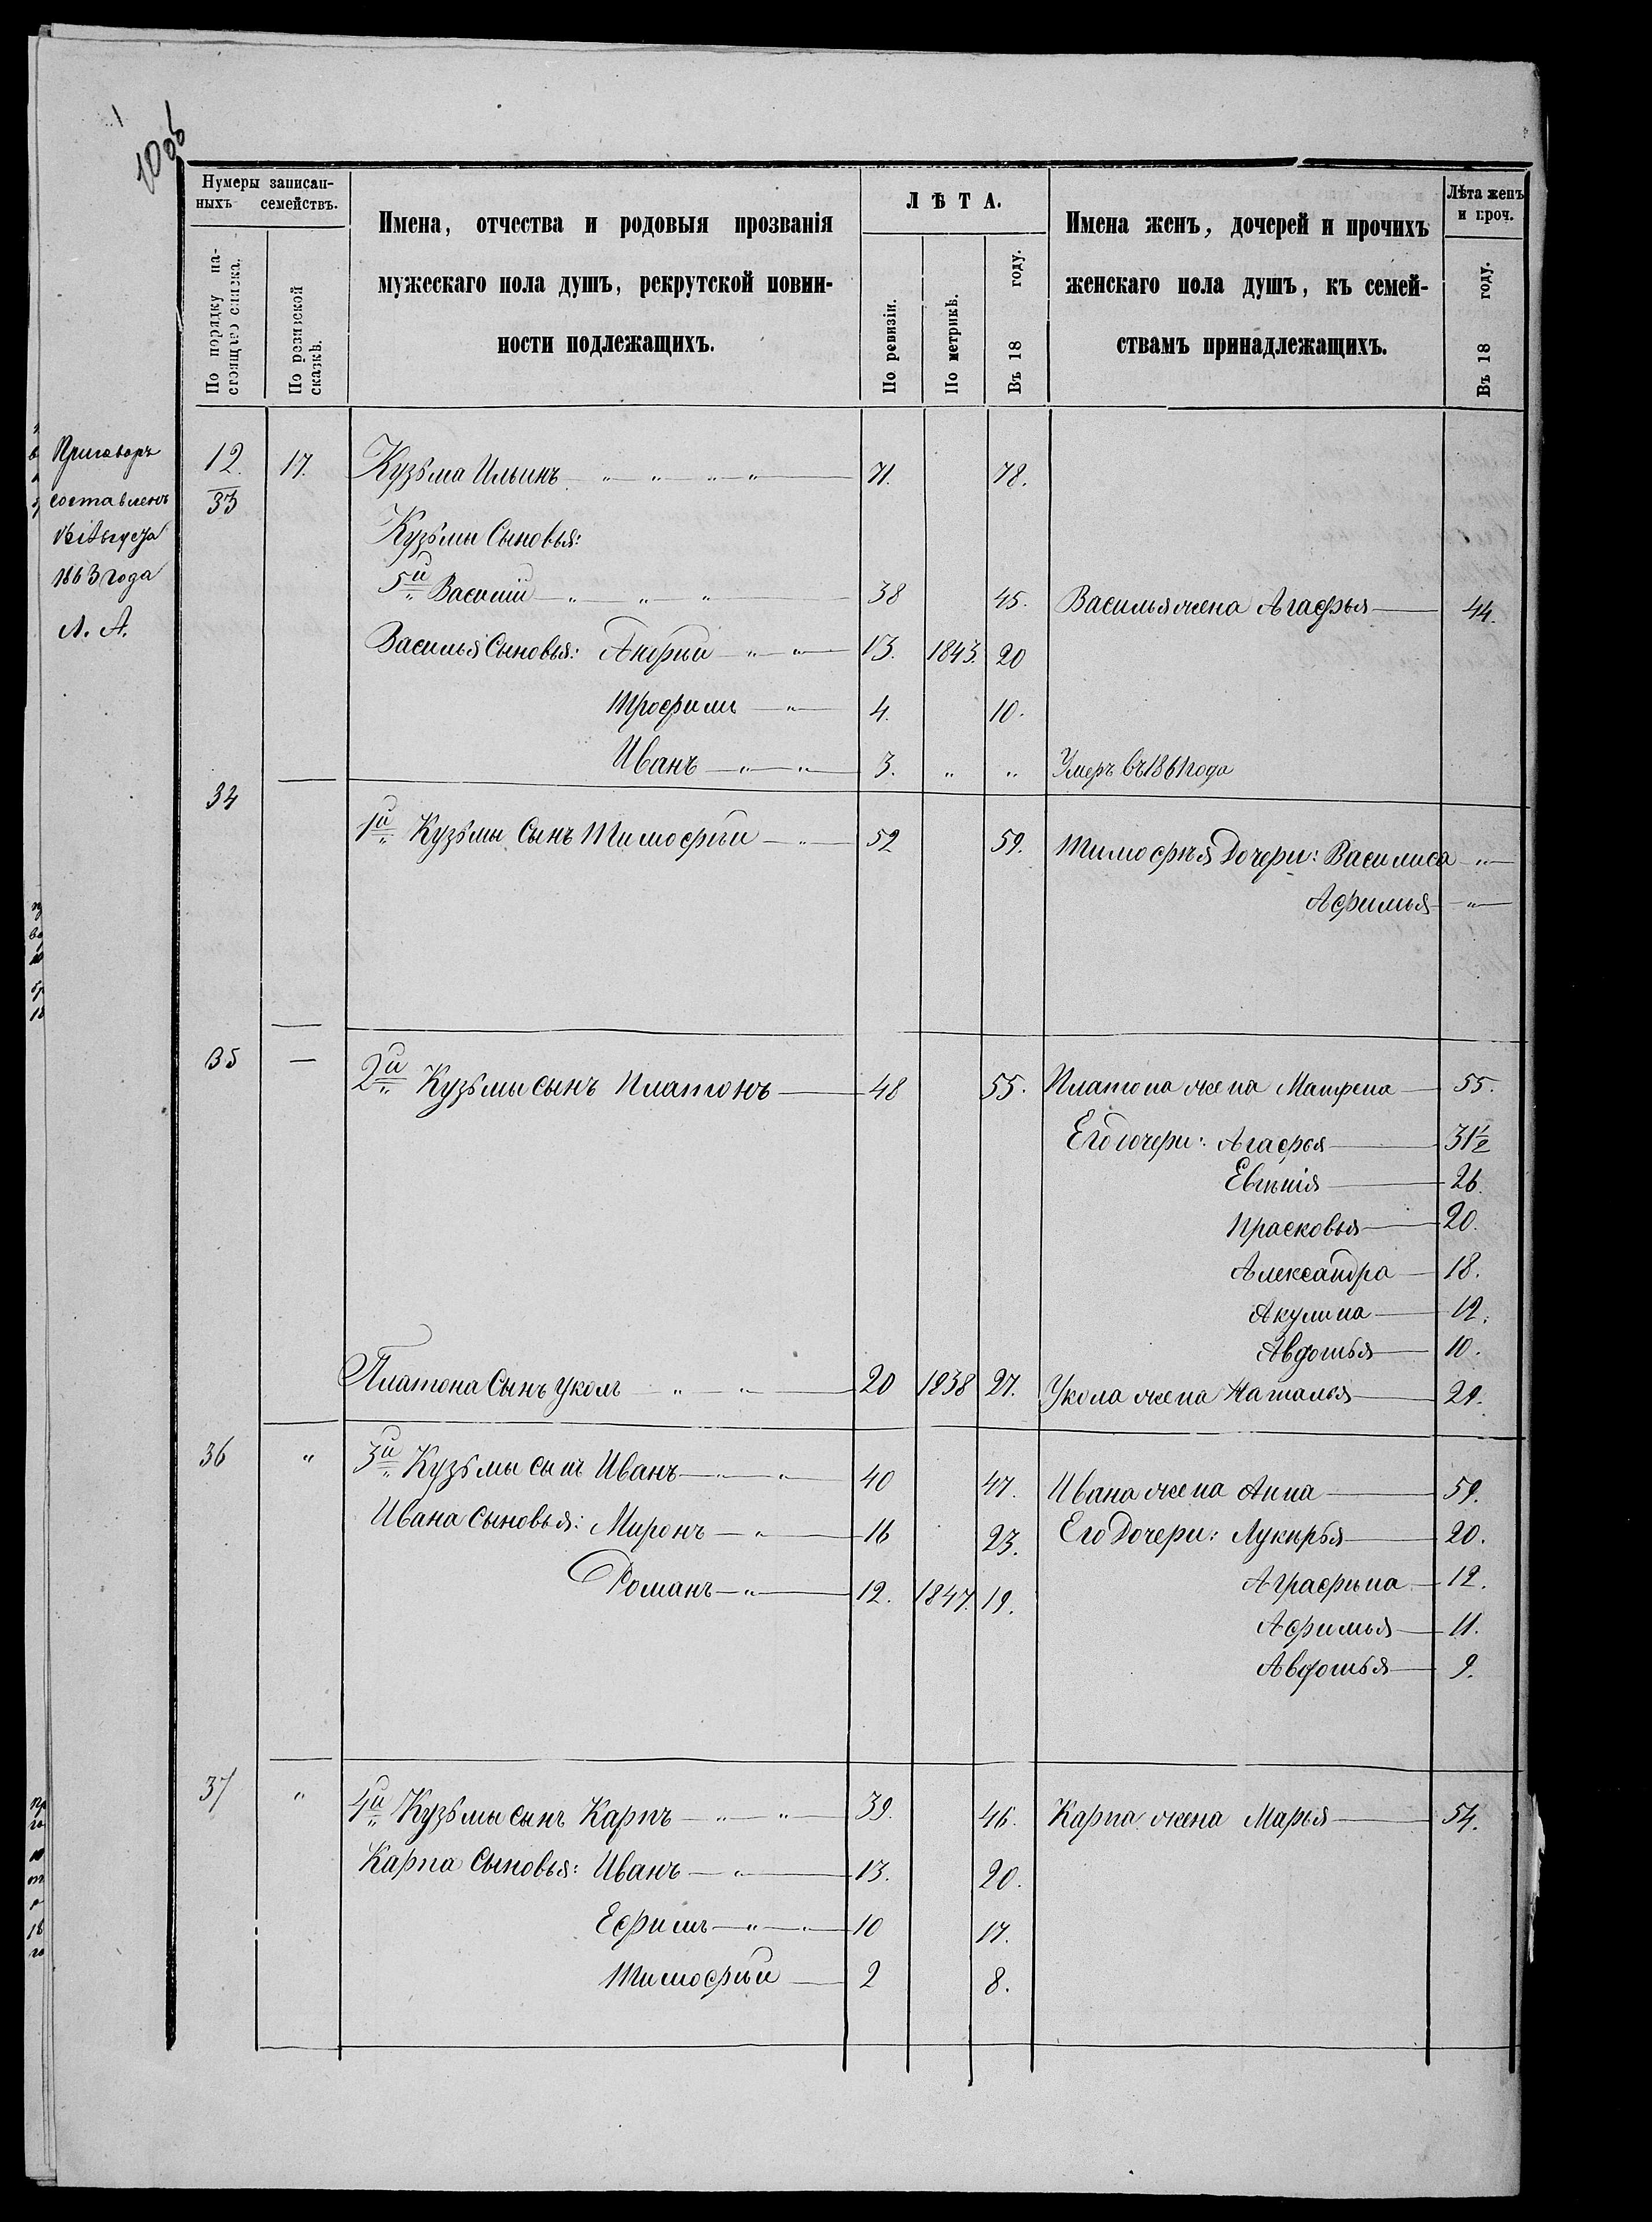 10об
Нумеры записан-
ныхъ семействъ.
По порядку на-
стоящаго списка.
По ревизской
сказкѣ.
Имена, отчества и родовыя прозванія
мужескаго пола душъ, рекрутской повин-
ности подлежащихъ.
ЛѢТА.
По ревизіи.
По метрикѣ.
Въ 18 году.
Имена женъ, дочерей и прочихъ
женскаго пола душъ, къ семей-
ствамъ принадлежащихъ.
Лѣта женъ
и проч.
Въ 18 году.
Приговоръ
составленъ
Августа
1863 года
Л. А.
12. 17. Кузьма Ильинъ 71. 78.
33
Кузьмы Сыновья:
5й Василій 38 45. Василья жена Агафья 44.
Василья Сыновья: Андрей 13. 1843. 20
Трофимъ 4. 10.
Иванъ 3. " " Умеръ въ 1861 года
34
1й Кузьмы Сынъ Тимофей 52 59. Тимофѣя Дочери: Василиса "
Афимья "
35 — 2й Кузьмы сынъ Платонъ 48 55. Платона жена Матрена 55.
Его дочери: Агафья 31½
Евгенія 26.
Прасковья 20.
Александра 18.
Акулина 12.
Авдотья 10.
Платона Сынъ Уколъ 20 1838 27. Укола жена Наталья 29.
36 " 3й Кузьмы сынъ Иванъ 40 47. Ивана жена Анна 59.
Ивана Сыновья: Миронъ 16 23. Его Дочери: Лукерья 20.
Романъ 12. 1847. 19. Аграфена 12.
Афимья 11.
Авдотья 9.
37 " 4й Кузьмы сынъ Карпъ 39. 46. Карпа жена Марья 54.
Карпа Сыновья: Иванъ 13. 20.
Ефимъ 10 17.
Тимофей 2 8.